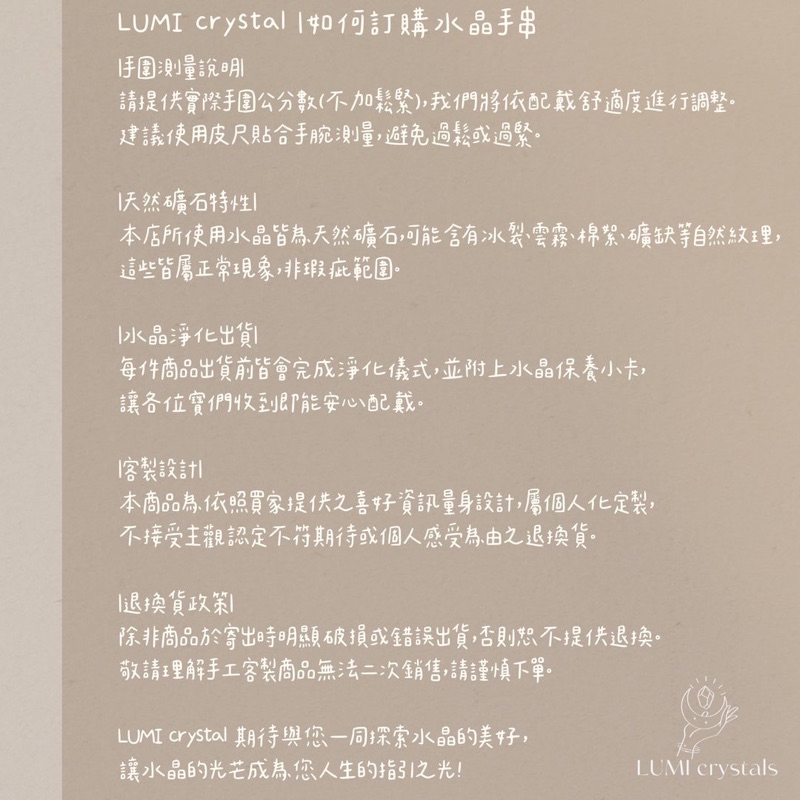 LUMI crystal |如何訂購水晶手串
|手圍測量說明|
請提供實際手圍公分數(不加鬆緊),我們將依配戴舒適度進行調整。
建議使用皮尺貼合手腕測量,避免過鬆或過緊。
|天然礦石特性|
本店所使用水晶皆為天然礦石,可能含有冰裂、雲霧、棉絮、礦缺等自然紋理,
這些皆屬正常現象,非瑕疵範圍。
|水晶淨化出貨|
每件商品出貨前皆會完成淨化儀式,並附上水晶保養小卡,
讓各位寶們收到即能安心配戴。
|客製設計|
本商品為依照買家提供之喜好資訊量身設計,屬個人化定製,
不接受主觀認定不符期待或個人感受為由之退換貨。
|退換貨政策|
除非商品於寄出時明顯破損或錯誤出貨,否則恕不提供退換。
敬請理解手工客製商品無法二次銷售,請謹慎下單。
LUMI crystal 期待與您一同探索水晶的美好,
讓水晶的光芒成為您人生的指引之光!
LUMI crystals